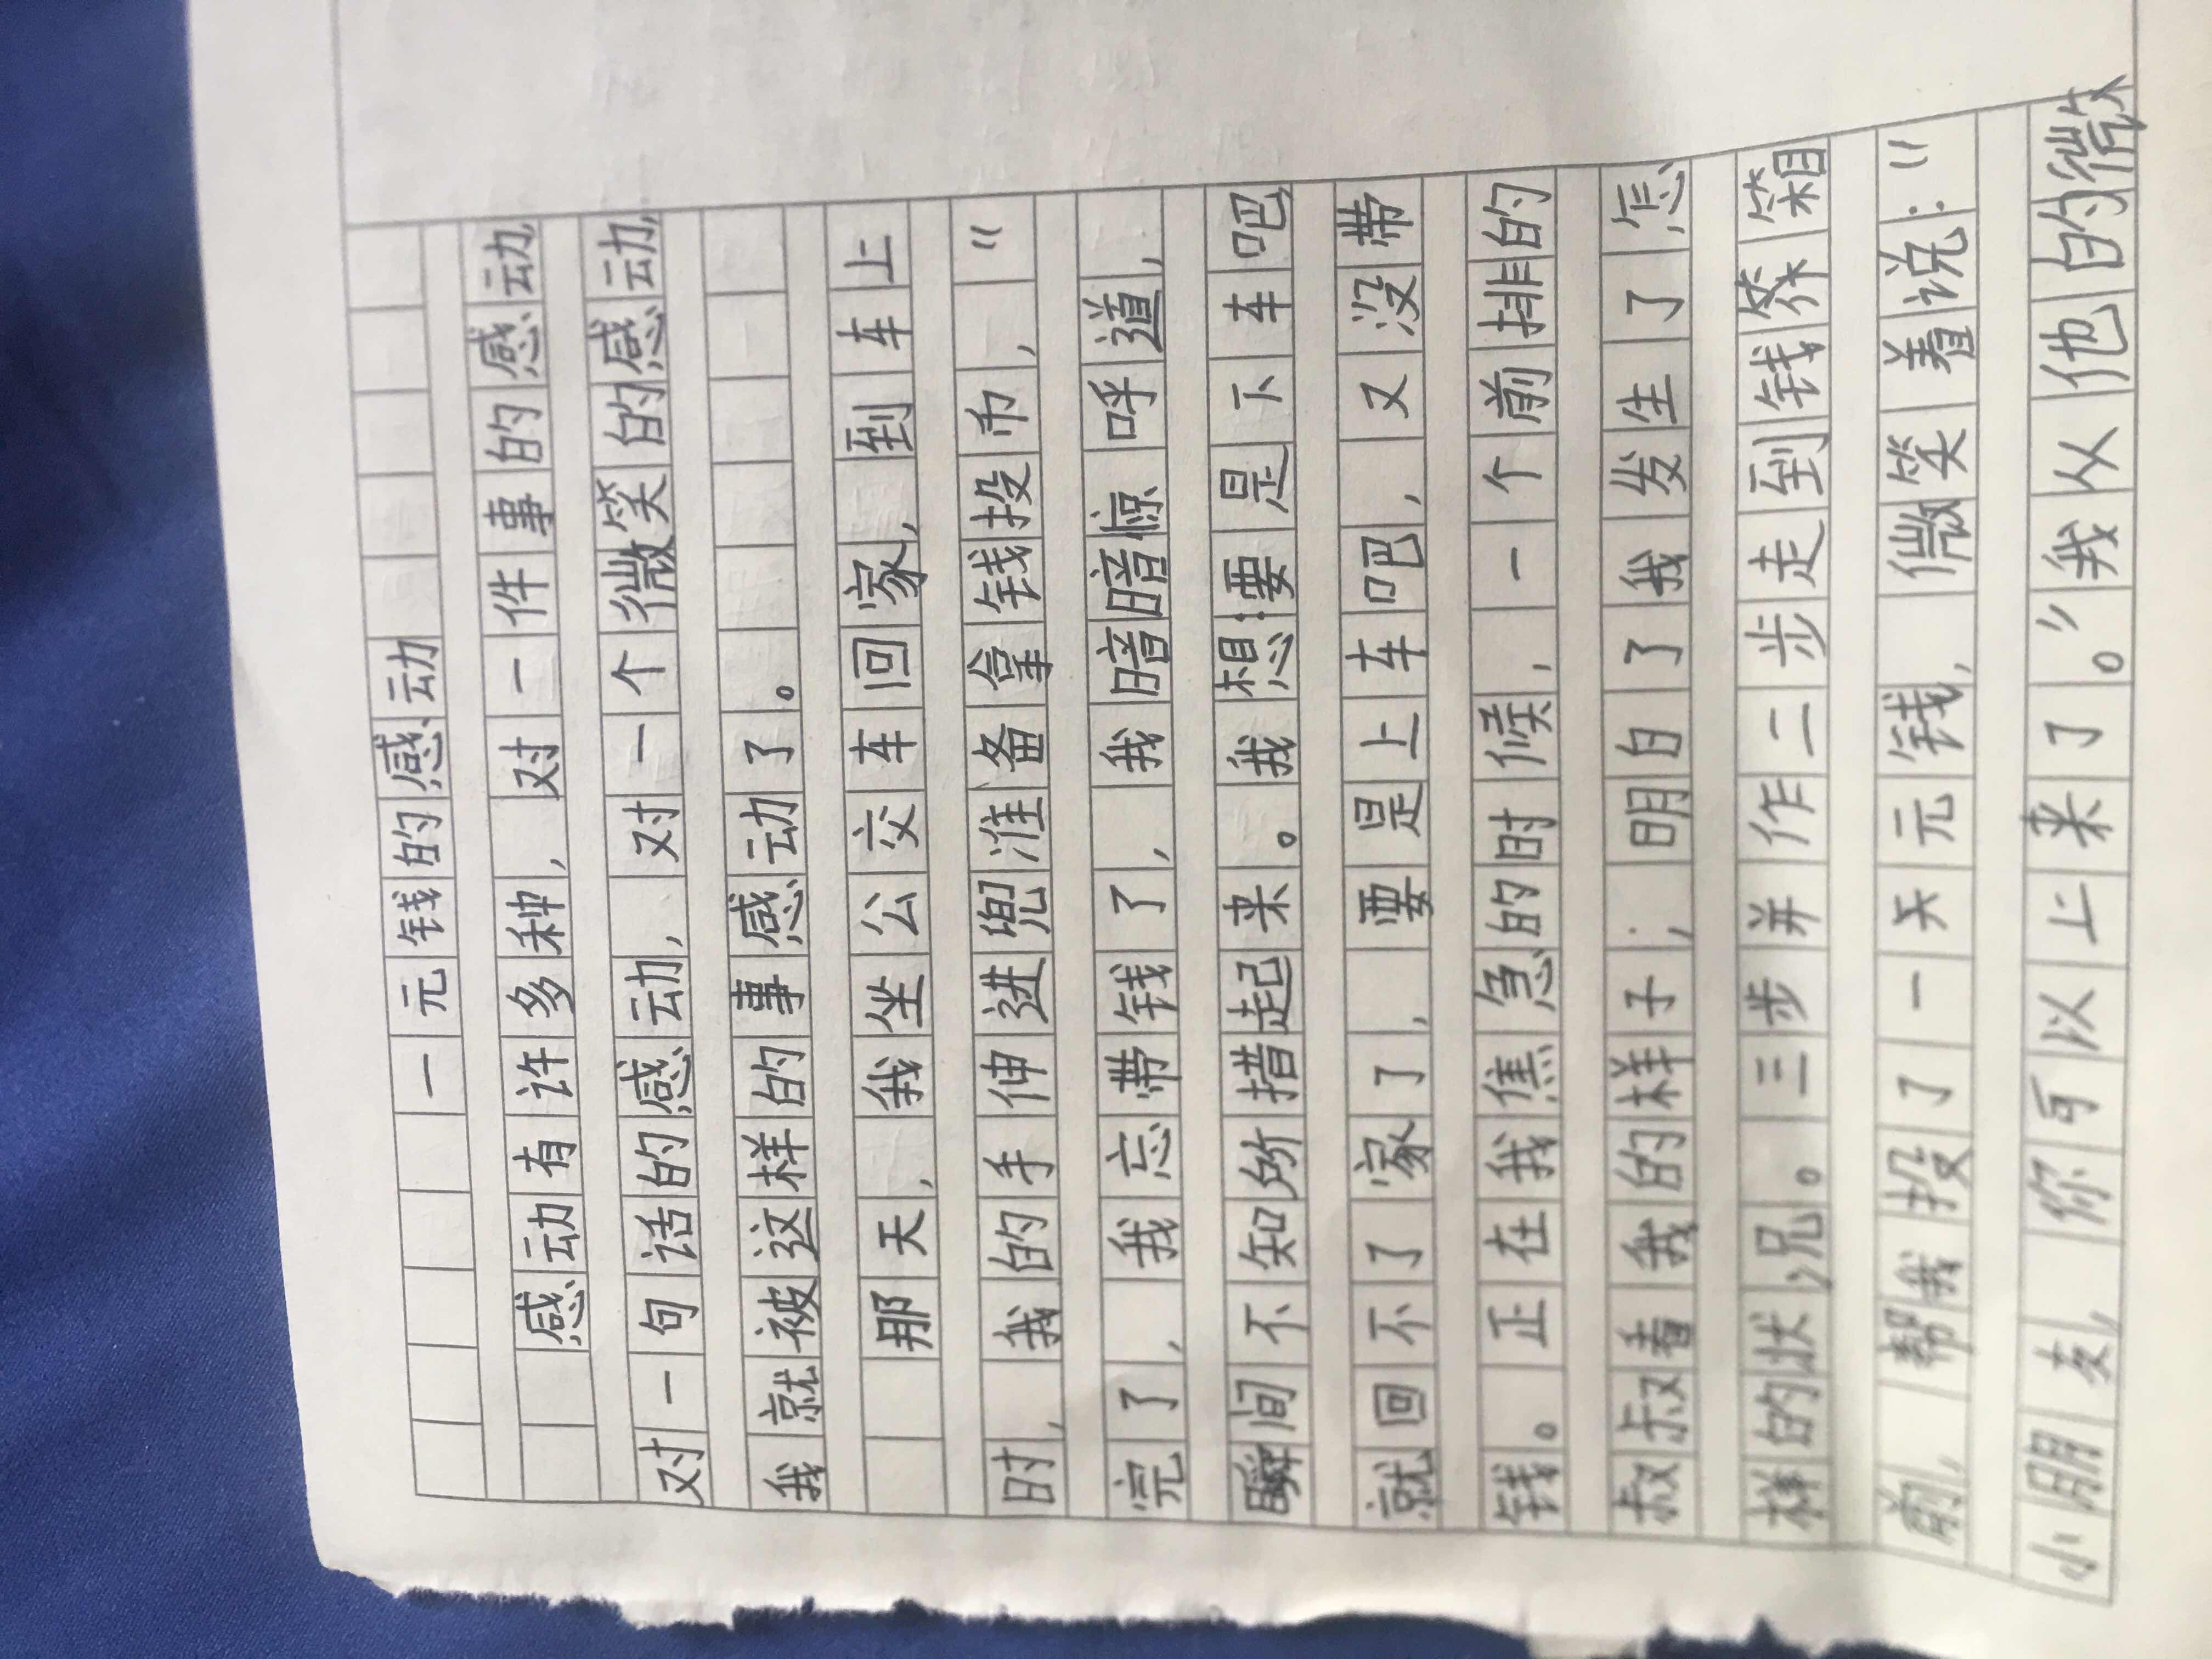 一元钱的感动
感动有许多种，对一件事的感动，
对一句话的感动，对一个微笑的感动，
我就被这样的事感动了。
那天，我坐公交车回家，到车上
时，我的手伸进兜准备拿钱投币，“
完了，我忘带钱了，我暗暗惊呼道，
瞬间不知所措起来。我想：要是下车吧，
就回不了家了，要是上车吧，又没带
钱。正在我焦急的时候，一个前排的
叔叔看我的样子；明白了我发生了怎
样的状况。三步并作二步走到钱箱
前，帮我投了一元钱，微笑着说：“
小朋友，你可以上来了。”我从他的微